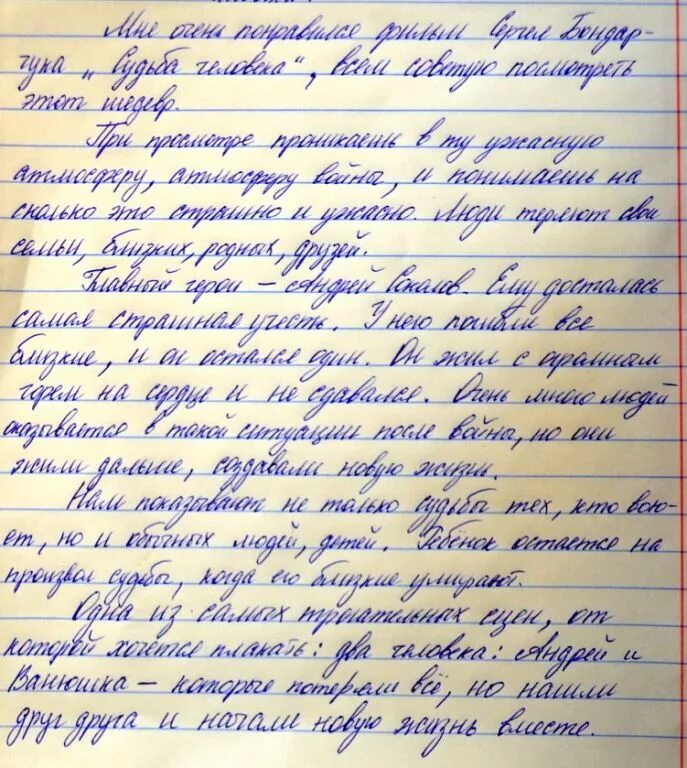 Мне очень понравился фильм Сергея Бондар-
чука „Судьба человека", всем советую посмотреть
этот шедевр.
При просмотре проникаешь в ту ужасную
атмосферу, атмосферу войны, и понимаешь на
сколько это страшно и ужасно. Люди теряют свои
семьи, близких, родных, друзей.
Главный герой – Андрей Соколов. Ему досталась
самая страшная участь. У него погибли все
близкие, и он остался один. Он жил с огромным
горем на сердце и не сдавался. Очень много людей
оказывается в такой ситуации после войны, но они
жили дальше, создавали новую жизнь.
Нам показывают не только судьбы тех, кто вою-
ет, но и обычных людей, детей. Ребёнок остаётся на
произвол судьбы, когда его близкие умирают.
Одна из самых трогательных сцен, от
которой хочется плакать: два человека: Андрей и
Ванюшка – которые потеряли всё, но нашли
друг друга и начали новую жизнь вместе.